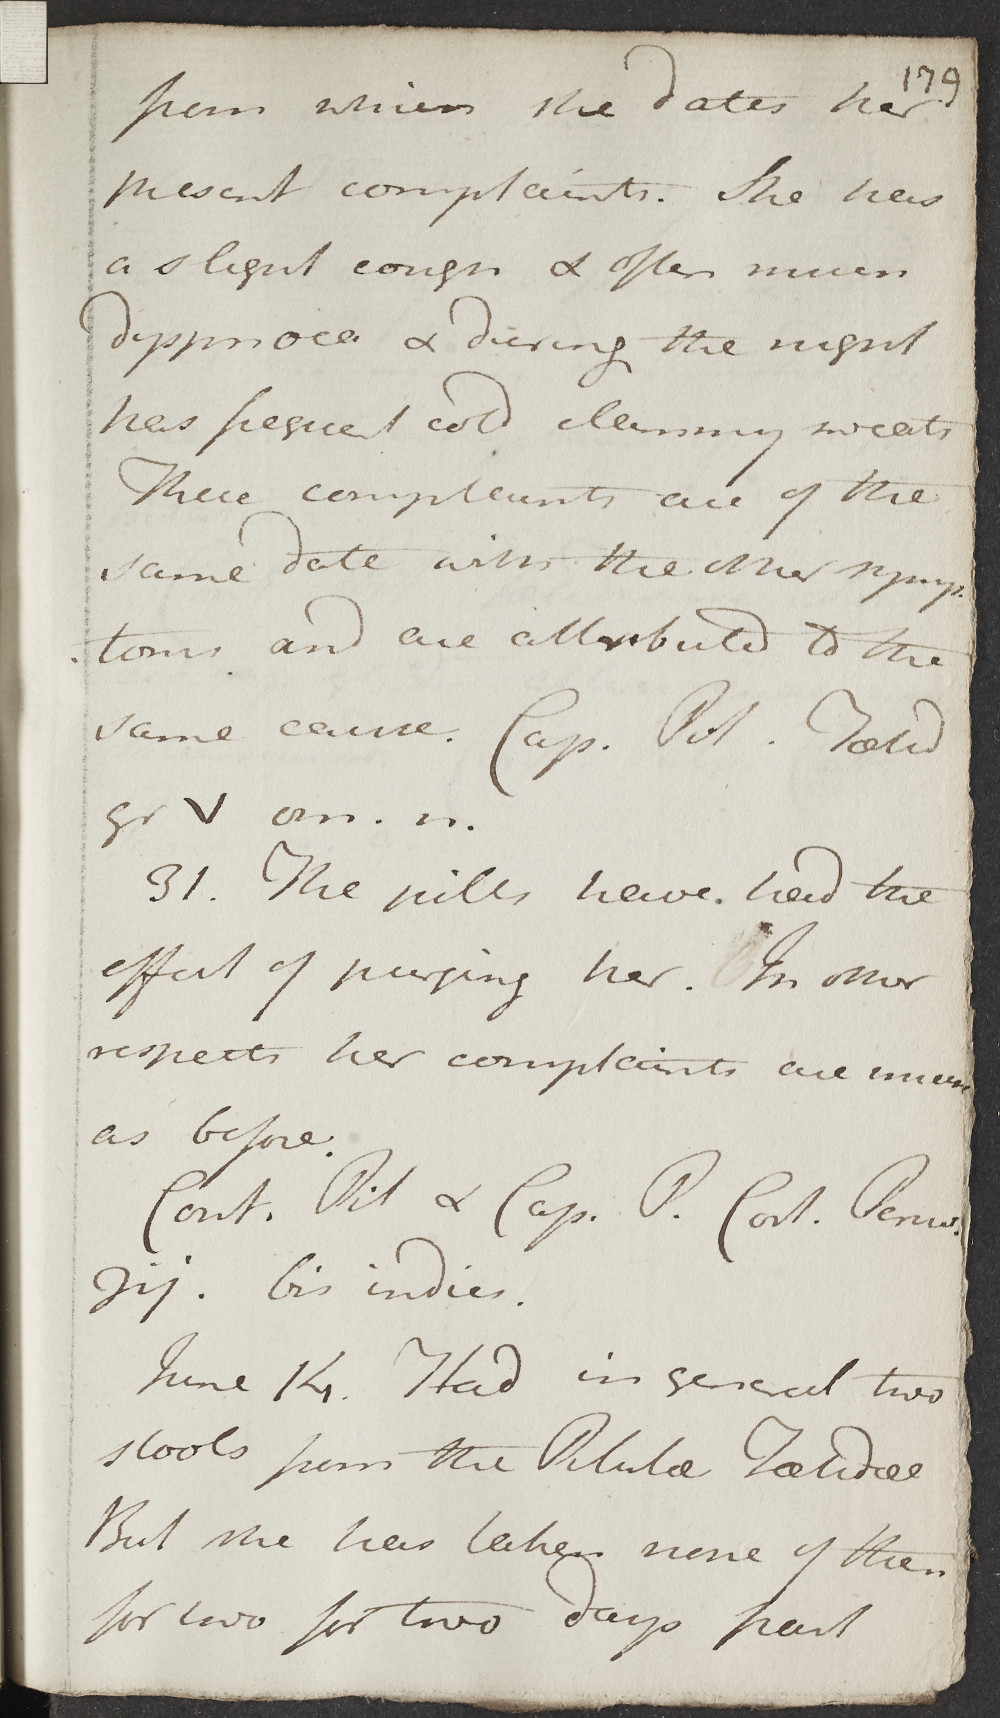 179
from which she dates her
present complaints. She has
a slight cough & often much
dyspnoea & during the night
has frequent cold clammy sweats
These complaints are of the
same date with the other symp-
toms and are attributed to the
same cause. Cap. Pil. Fœtid
gr V om. n.
31. The pills have had the
effect of purging her. In other
respects her complaints are much
as before.
Cont. Pil & Cap. P. Cort. Peruv.
ʒij. bis indies.
June 14. Had in general two
stools from the Pilulæ Fœtidæ
But she has taken none of them
for two for two days past